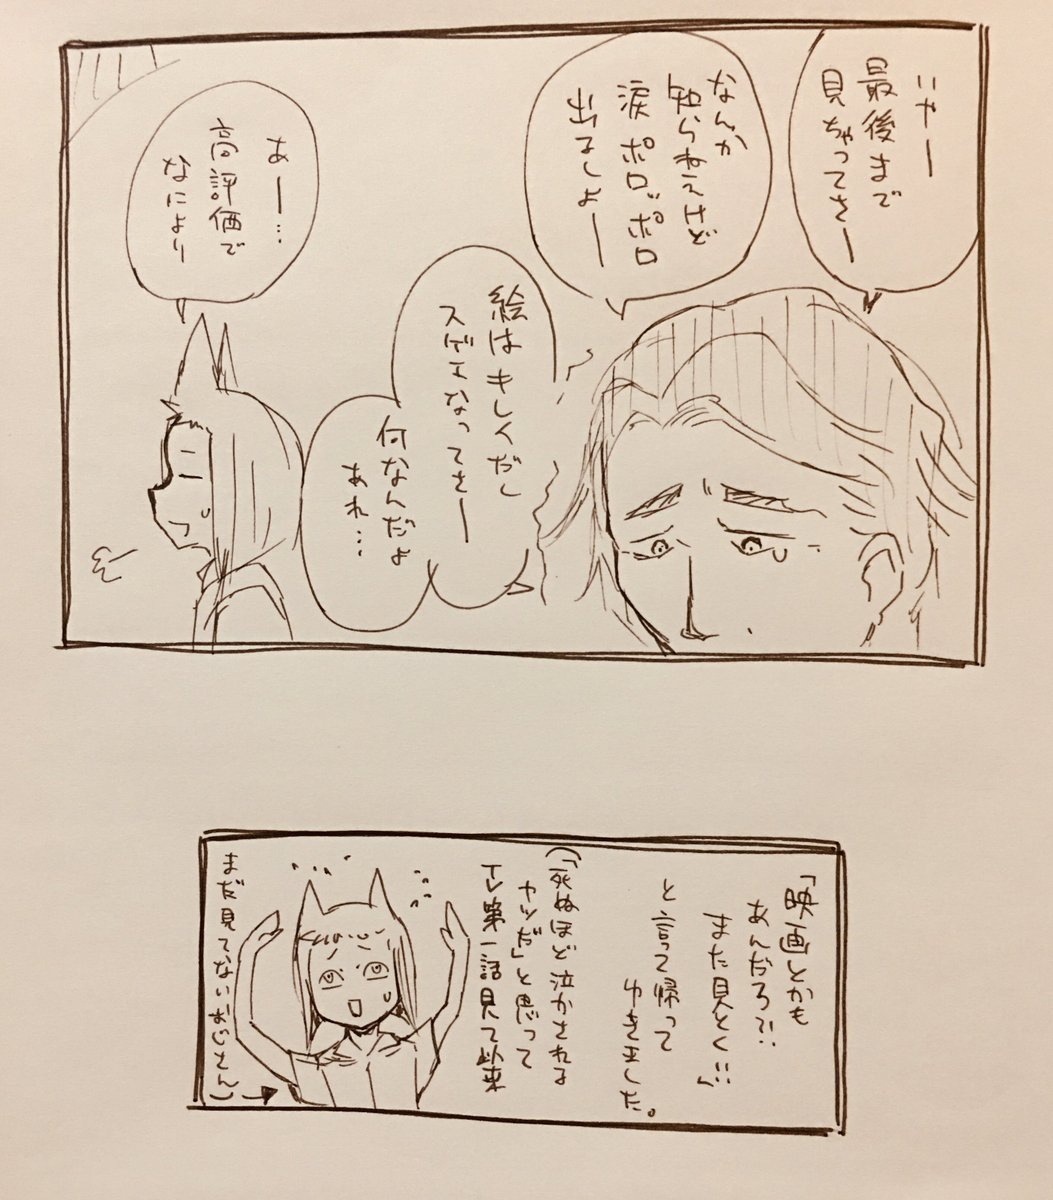 いやー
最後まで
見ちゃってさー
なんか
知らねえけど
涙 ポロッポロ
出るしよー
絵はキレイだし
スゲエなってさー
何なんだよ
あれ…
あー…
高評価で
なにより
「映画とかも
あんだろ?!
また見とく!!」
と言って帰って
ゆきました。
(「死ぬほど泣かされる
ヤツだ」と思って
TV第一話見て以来
まだ見てないおじさん)→